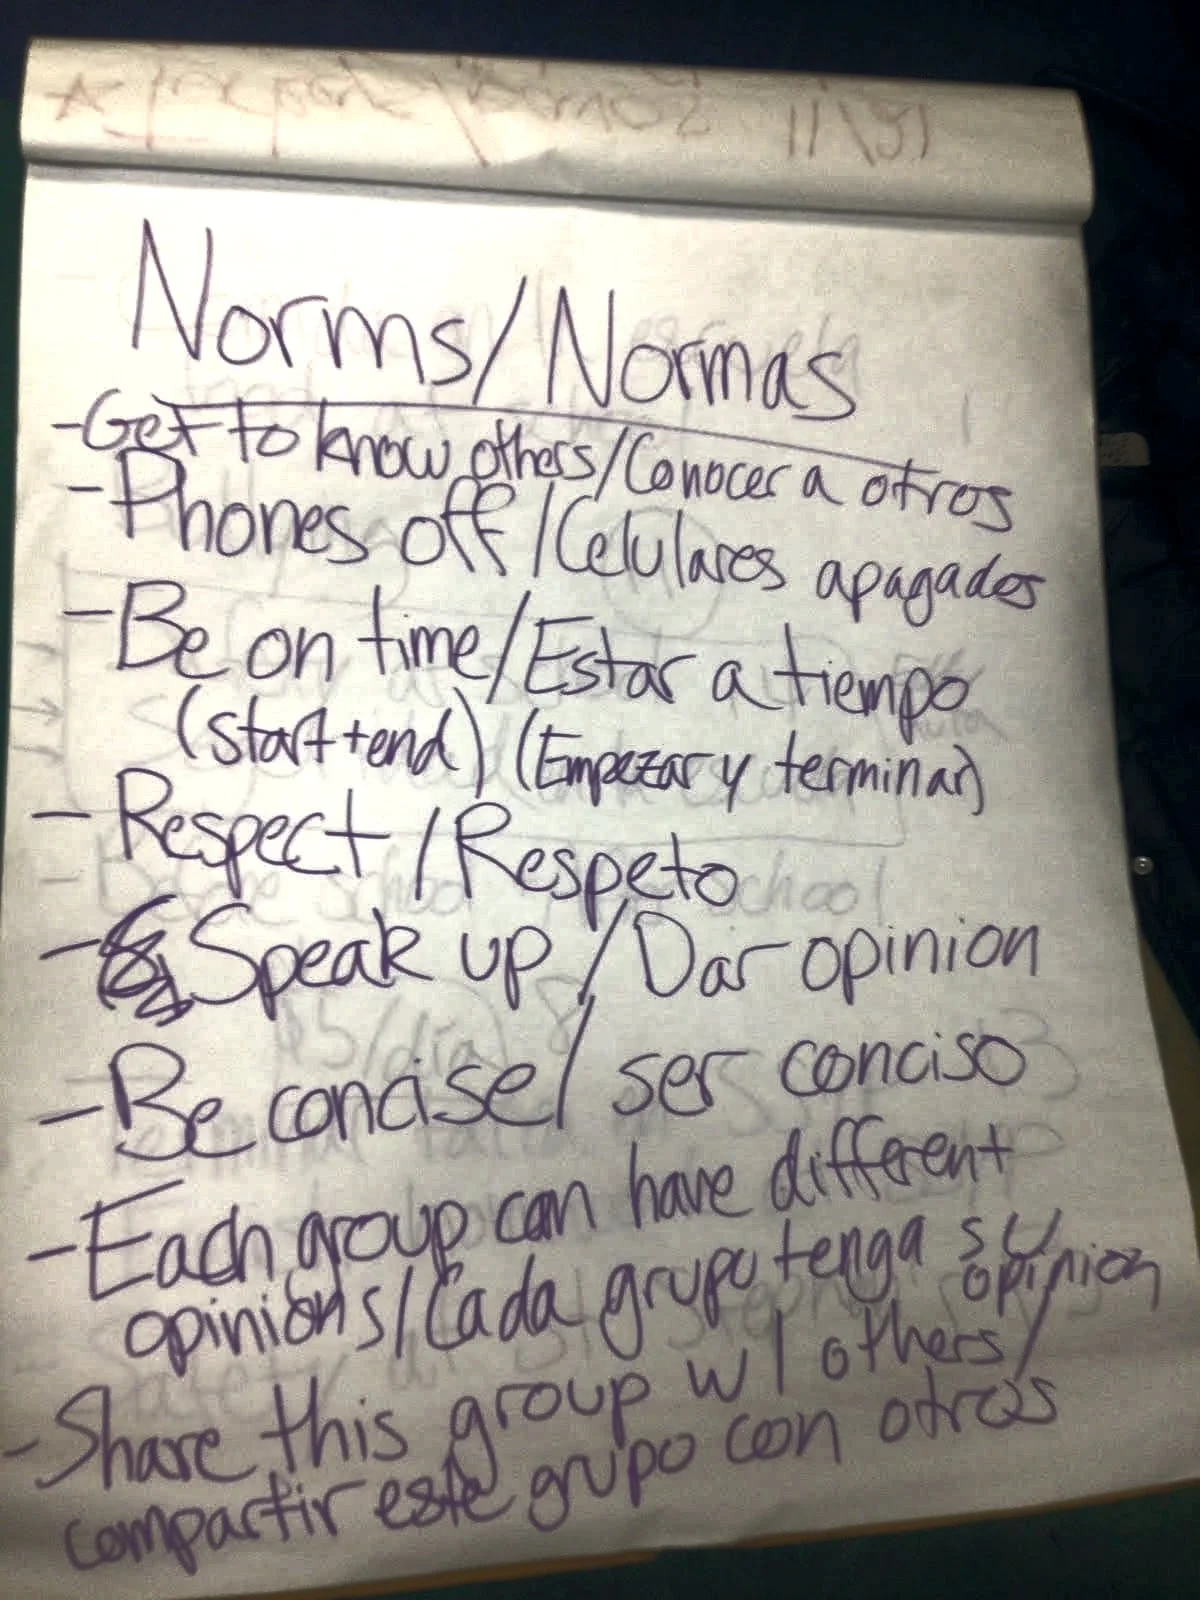 Norms/Normas
- Get to know others/Conocer a otros
- Phones off/Celulares apagados
- Be on time/Estar a tiempo
(start + end) (Empezar y terminar)
- Respect/Respeto
- Speak up/Dar opinion
- Be concise/ser conciso
- Each group can have different
opinions/Cada grupo tenga su
opinion
- Share this group w/ others/
compartir este grupo con otros